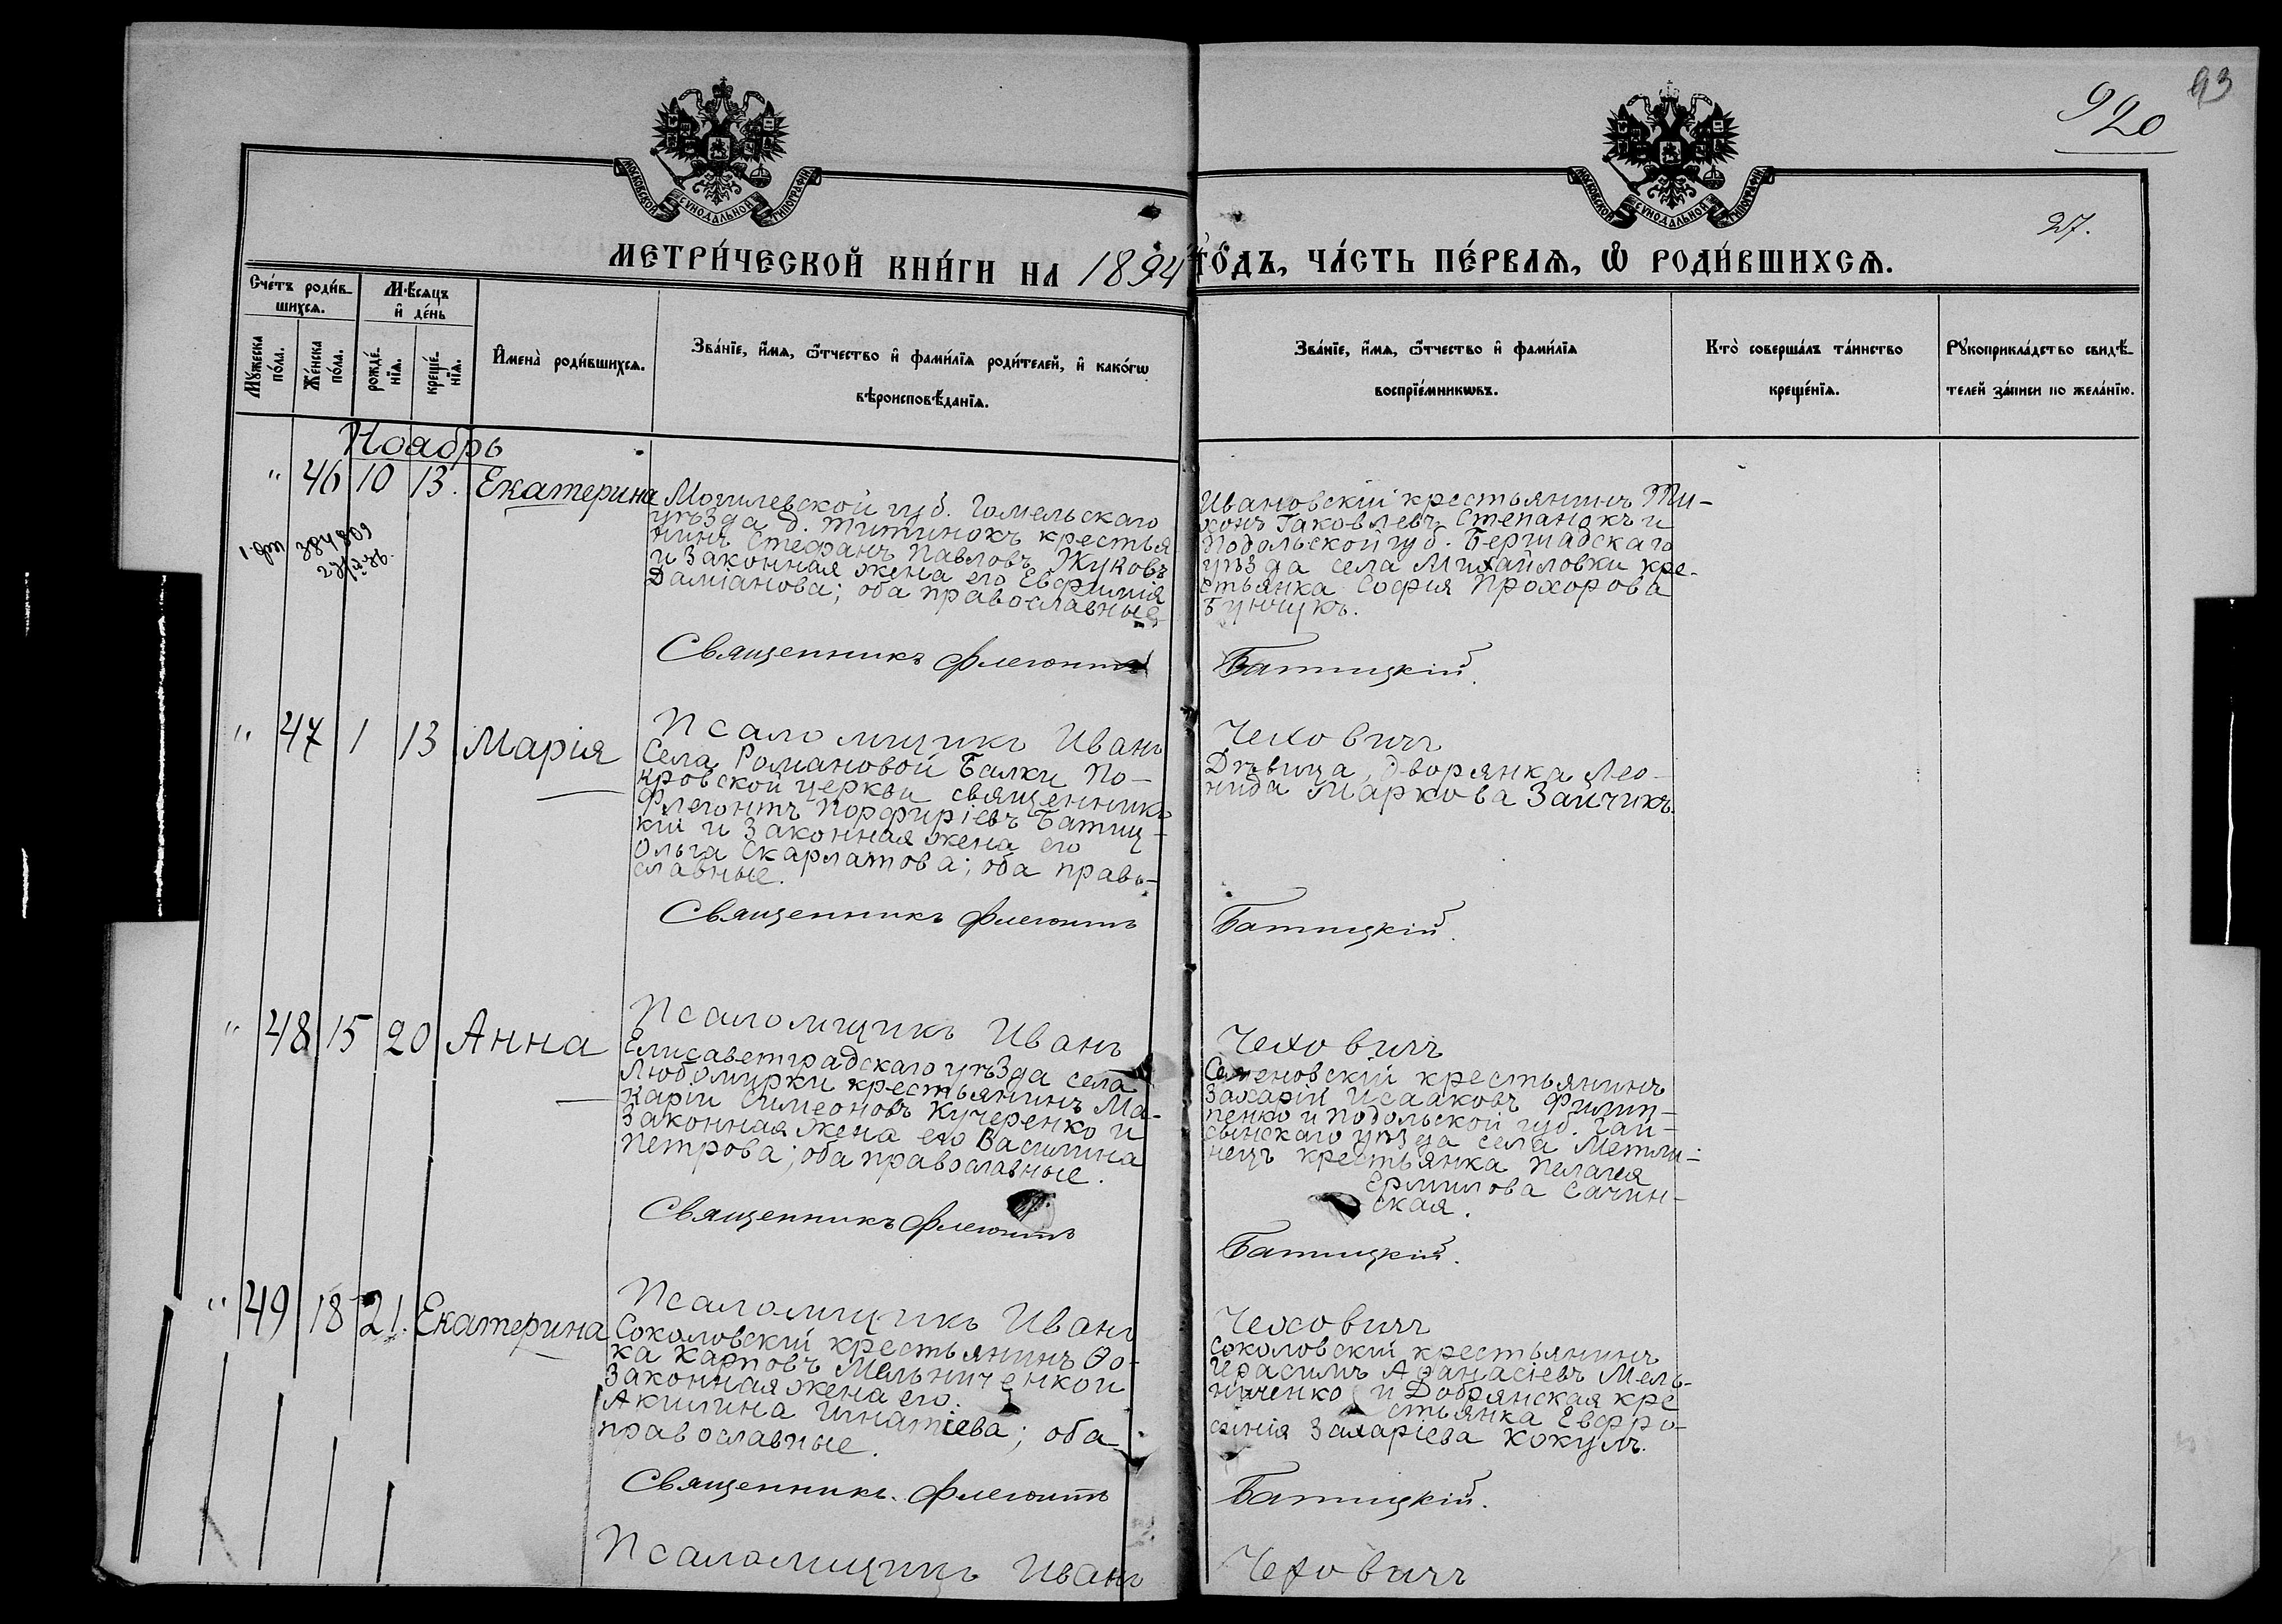 93
920
27.
МОСКОВСКОЙ СУНОДАЛЬНОЙ ТИПОГРАФІИ
МОСКОВСКОЙ СУНОДАЛЬНОЙ ТИПОГРАФІИ
МЕТРИ́ЧЕСКОЙ КНИ́ГИ НА 1894 ГО́ДЪ, ЧА́СТЬ ПЕ́РВАЯ, Ѡ РОДИ́ВШИХСЯ.
Сче́тъ роди́в-
шихся.
Мѣ́сяцъ
и҆ де́нь
Му́жеска
по́ла.
Же́нска
по́ла.
рожде́-
нїя.
креще́-
нїя.
И҆мена̀ роди́вшихся.
Зва́нїе, и҆́мя, ѻ҆́тчество и҆ фами́лїя роди́телей, и҆ како́гѡ
вѣроисповѣ́данїя.
Зва́нїе, и҆́мя, ѻ҆́тчество и҆ фами́лїя
воспрїе́мникѡвъ.
Кто̀ соверша́лъ та́инство
креще́нїя.
Рꙋкоприкла́дство свидѣ́-
телей за́писи по жела́нїю.
Ноябрь
" 46 10 13. Екатерина
Могилевской губ. Гомельскаго
уѣзда д. Титинокъ крестья
нинъ Стефанъ Павловъ Жуковъ
и законная жена его Евфимія
Даміанова; оба православные
Ивановскій крестьянинъ Ти-
хонъ Іаковлевъ Степанокъ и
Подольской губ. Бершадскаго
уѣзда села Михайловки кре-
стьянка София Прохорова
Бунчукъ.
384809
Священникъ Флегонтъ Батицкій.
Псаломщикъ Иванъ Чеховичъ
" 47 1 13 Марія
Села Романовой Балки По-
кровской церкви священникъ
Флегонтъ Порфиріевъ Батиц-
кій и законная жена его
Ольга Скарлатова; оба право-
славные.
Дѣвица, дворянка Лео-
нида Маркова Зайчикъ.
Священникъ Флегонтъ Батицкій.
Псаломщикъ Иванъ Чеховичъ
" 48 15 20 Анна
Елисаветградскаго уѣзда села
Любомирки крестьянинъ Ма-
карій Симеоновъ Кучеренко и
законная жена его Василина
Петрова; оба православные.
Семеновскій крестьянинъ
Захарій Исааковъ Филип-
пенко и Подольской губ. Гай-
сынскаго уѣзда села Метли-
нецъ крестьянка Пелагія
Ермилова Сачин-
ская.
Священникъ Флегонтъ Батицкій.
Псаломщикъ Иванъ Чеховичъ
" 49 18 21. Екатерина
Соколовскій крестьянинъ Ѳо-
ка Карповъ Мельниченко и
законная жена его
Акилина Игнатіева; оба
православные.
Соколовскій крестьянинъ
Герасимъ Афанасіевъ Мель-
ниченко и Добрянская кре
стьянка Евфро-
синія Захаріева Кокулъ.
Священникъ Флегонтъ Батицкій.
Псаломщикъ Иванъ Чеховичъ